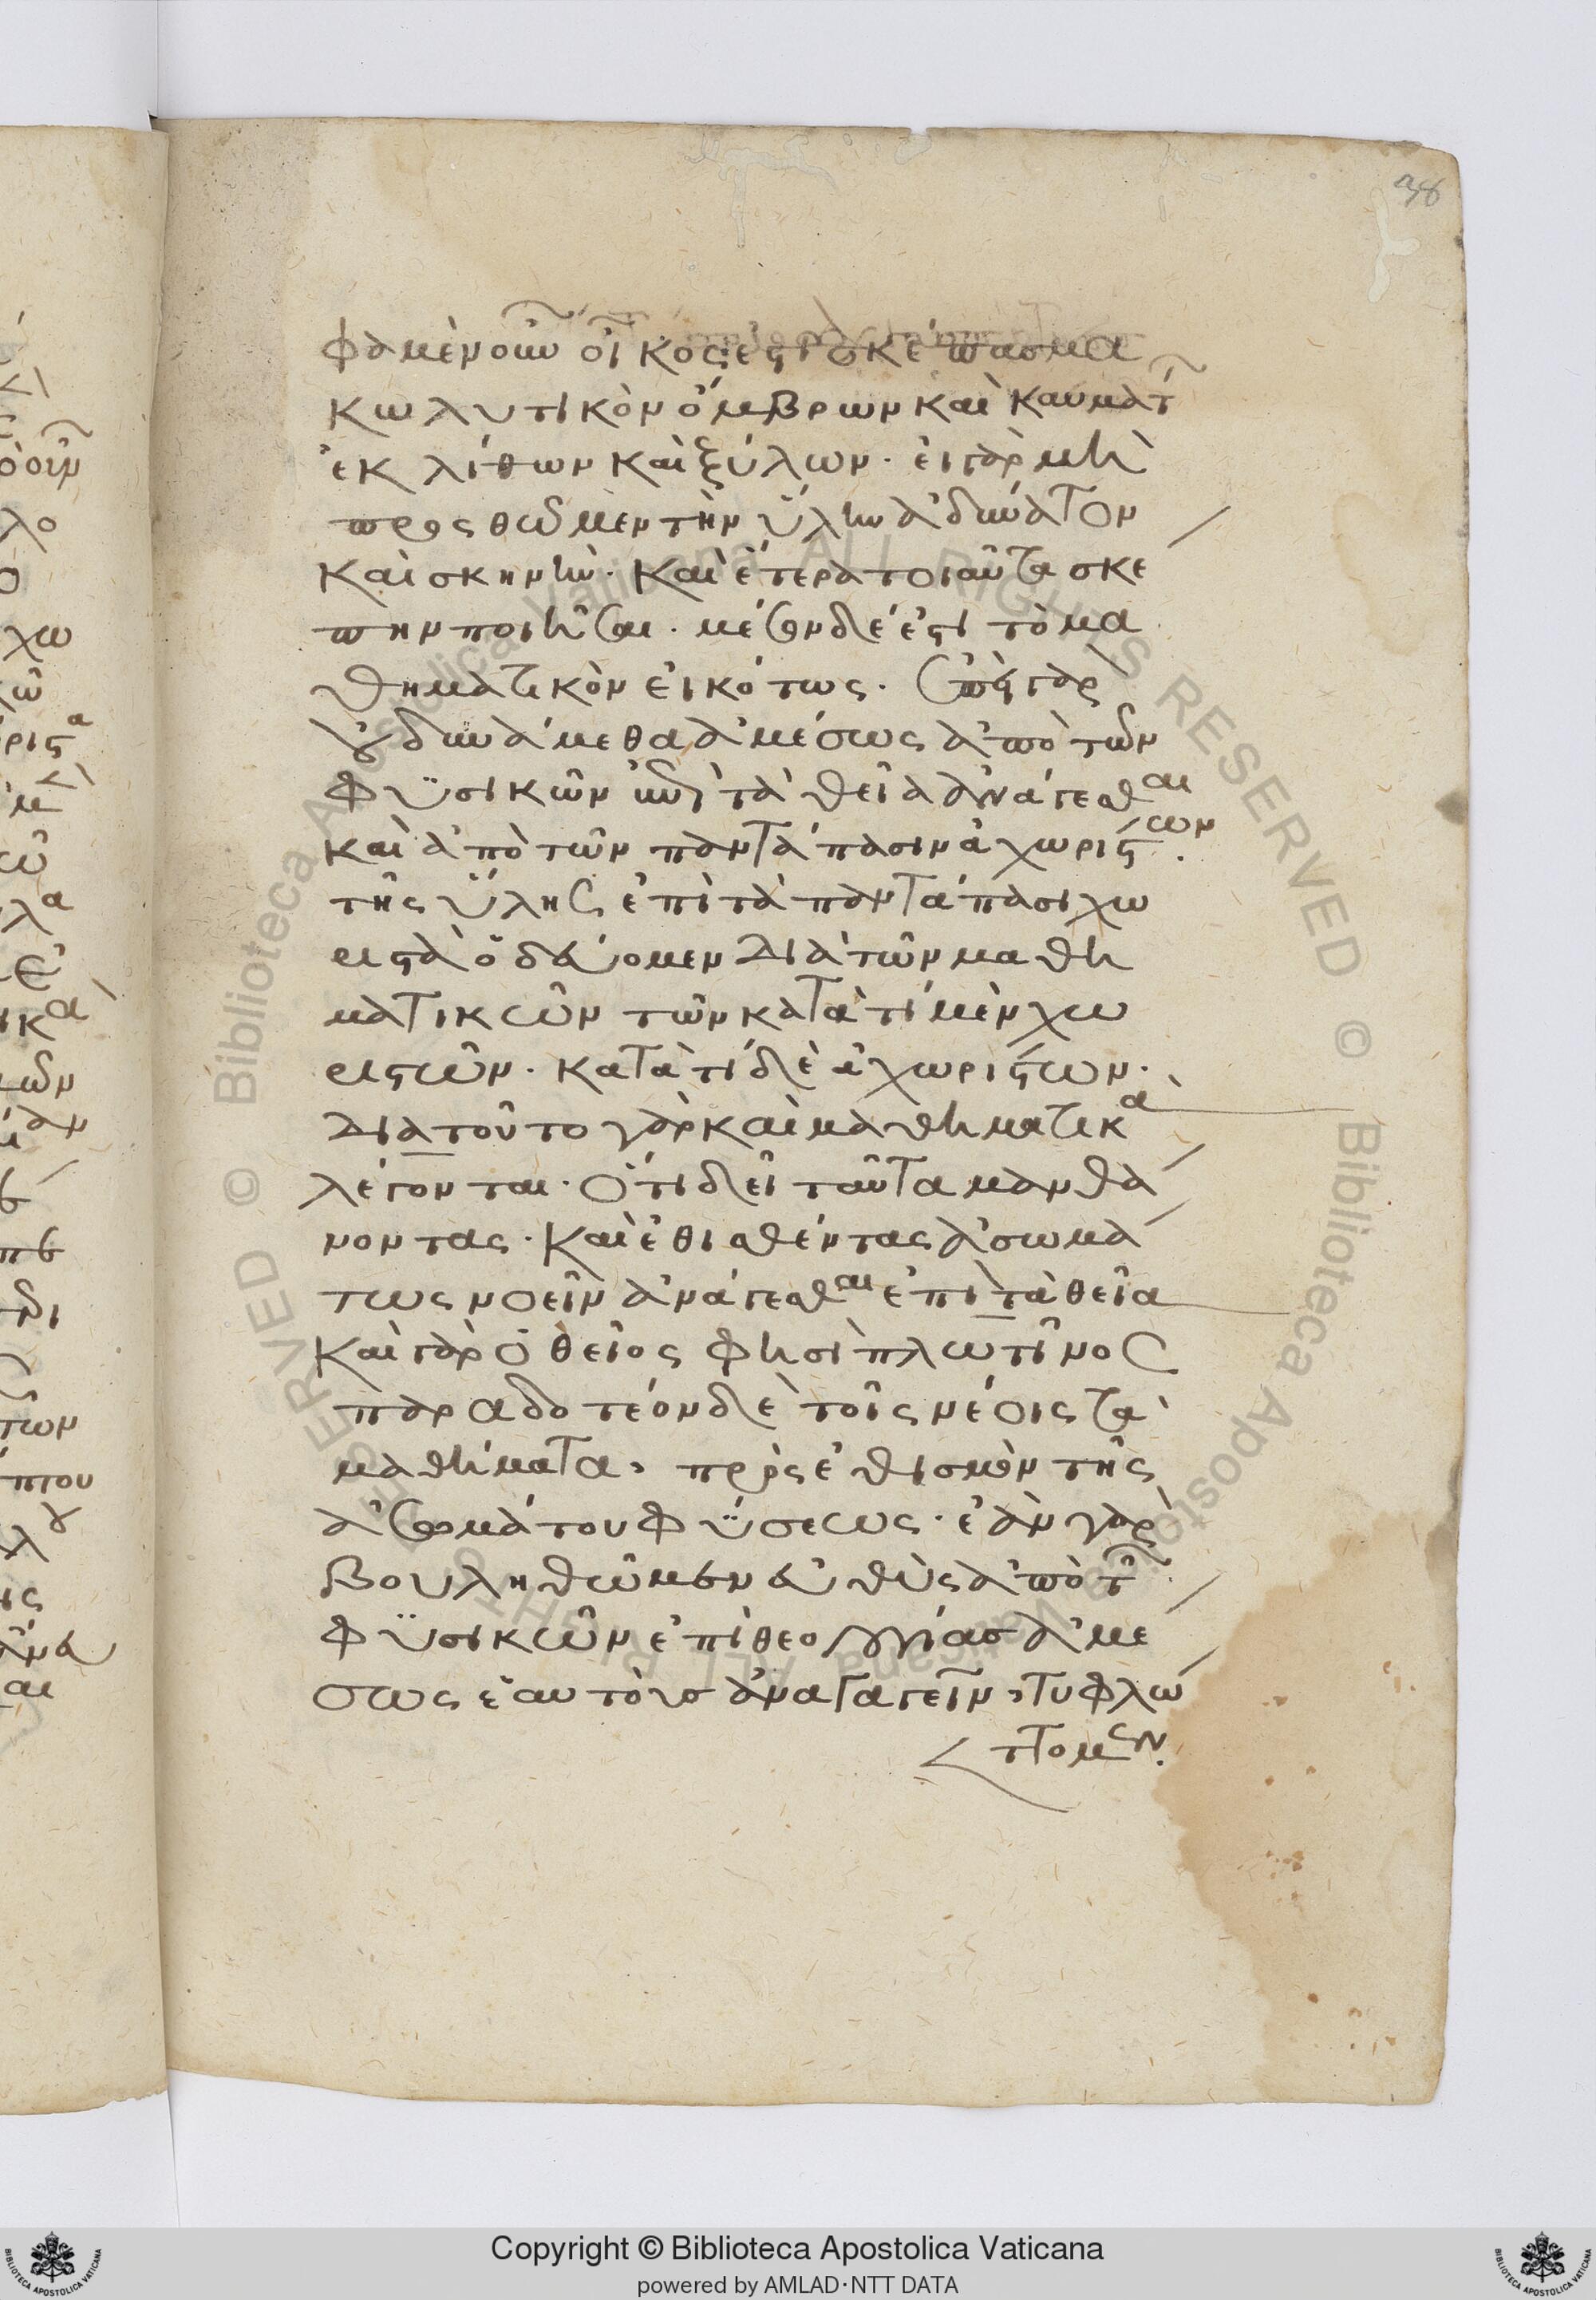 38
φαμὲν οὖν οἶκος ἐστι σκέπασμα
κωλυτικὸν ὄμβρων καὶ καυμάτ
ἐκ λίθων καὶ ξύλων. εἰ γὰρ μὴ
προσθῶμεν τὴν ὕλην ἀδύνατον
καὶ σκηνὴν. καὶ ἕτερα τοιαῦτα σκέ
πην ποιῆσαι. μέσον δέ ἐστι τὸ μα
θηματικὸν εἰκότως. ἐπεὶ γὰρ
οὐ δυνάμεθα ἀμέσως ἀπὸ τῶν
φϋσικῶν ἐπὶ τὰ θεῖα ἀνάγεσθαι
καὶ ἀπὸ τῶν παντάπασιν ἀχωρίστων.
τῆς ὕλης ἐπὶ τὰ παντάπασι χω
ριστὰ ὁδεύομεν διὰ τῶν μαθη
ματικῶν τῶν κατά τι μὲν χω
ριστῶν. κατά τι δὲ ἀχωρίστων.
διὰ τοῦτο γὰρ καὶ μαθηματικὰ
λέγονται. ὅτι δεῖ ταῦτα μανθά
νοντας. καὶ ἐθισθέντας ἀσωμά
τως νοεῖν ἀνάγεσθαι ἐπὶ τὰ θεῖα
καὶ γὰρ ὁ θεῖος φησὶ πλωτῖνος
παραδοτέον δὲ τοῖς νέοις τὰ
μαθήματα, πρὸς ἐθισμὸν τῆς
ἀσωμάτου φϋσεως. ἐὰν γὰρ
βουληθῶμεν εὐθὺς ἀπὸ τ
φϋσικῶν ἐπὶ θεολογίασ ἀμέ
σως ἑαυτοὺσ ἀνατατεῖν, τυφλώ
ττομεν.
Copyright © Biblioteca Apostolica Vaticana
powered by AMLAD·NTT DATA